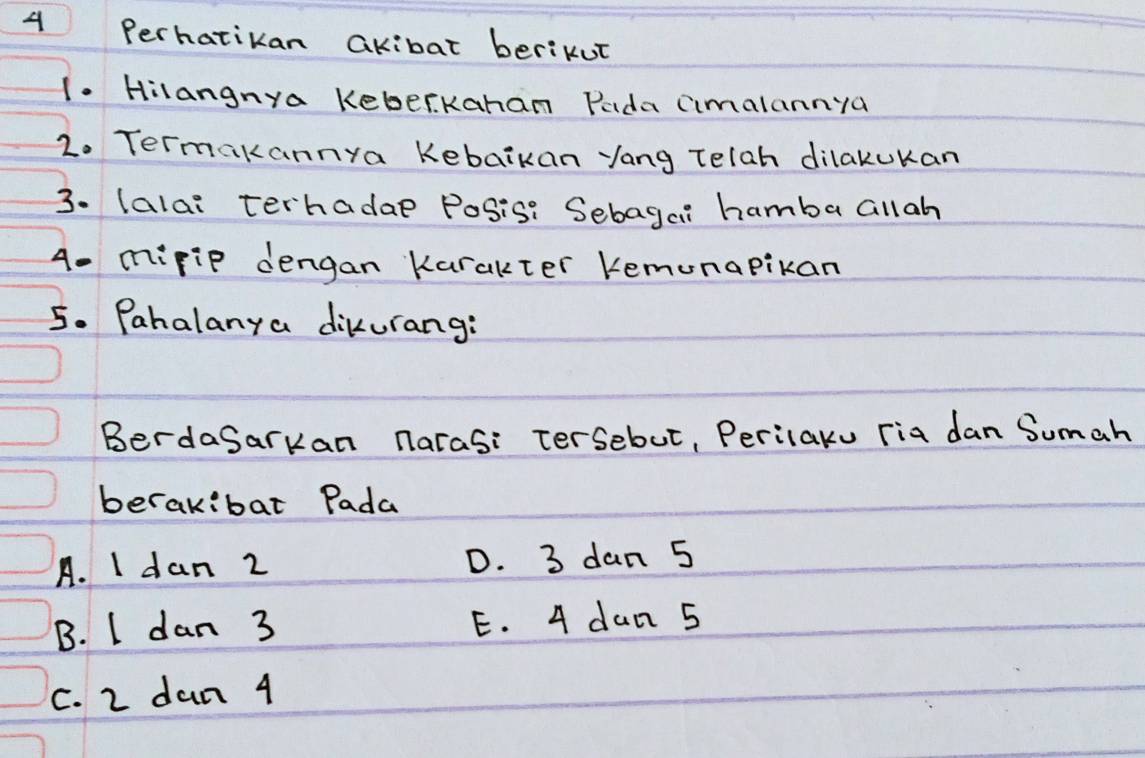 4 Perhatikan akibat berikut
1. Hilangnya Keberkahan Pada amalannya
2. Termakannya Kebaikan yang telah dilakukan
3. lalai terhadap Posisi Sebagai hamba allah
4. mirip dengan karakter kemunapikan
5. Pahalanya dikurangi
Berdasarkan narasi tersebut, Perilaku ria dan Sumah
berakibat Pada
A. 1 dan 2 D. 3 dan 5
B. 1 dan 3 E. 4 dan 5
C. 2 dan 4